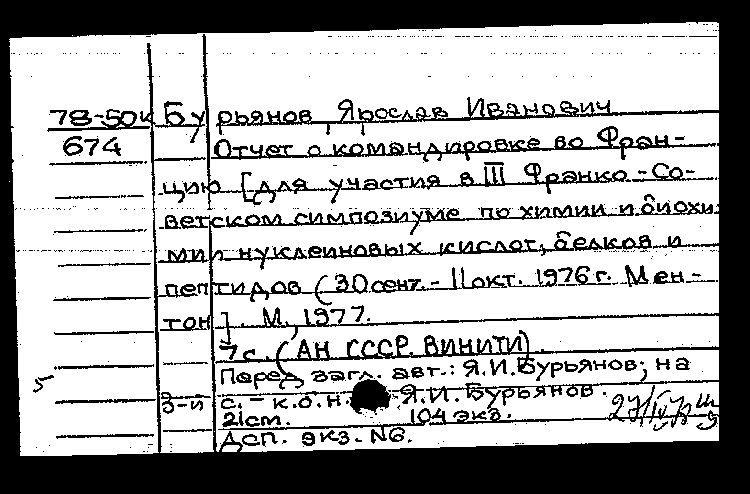 78-50к Бурьянов, Ярослав Иванович
674 Отчет о командировке во Фран-
цию [для участия в III Франко-Со-
ветском симпозиуме по химии и биохи-
мии нуклеиновых кислот, белков и
пептидов (30 сент. - 11 окт. 1976 г. Мен-
тон]. М., 1977.
7 с. (АН СССР. ВИНИТИ).
Перед загл. авт.: Я.И.Бурьянов; на
5 3-й с. - к.б.н. Я.И.Бурьянов.
21см. 104 экз. 27/IV
Дсп. экз. N6.